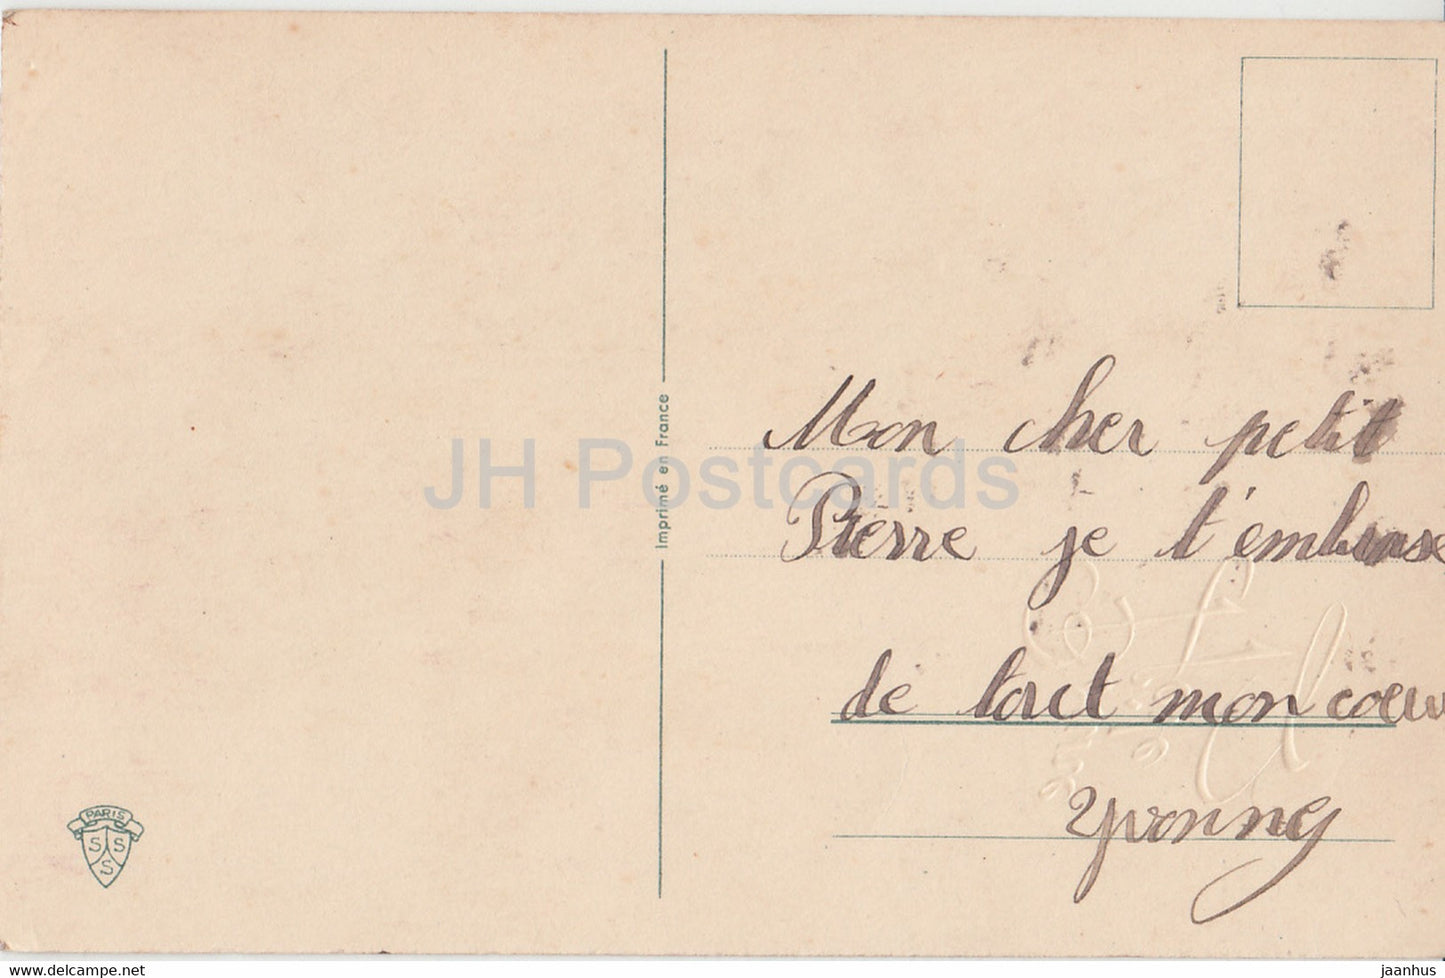 Mon cher petit
Pierre je t'embrasse
de tout mon coeur
Yvonne
Imprimé en France
PARIS
S S
S
JH Postcards
delcampe.net
jaanhus